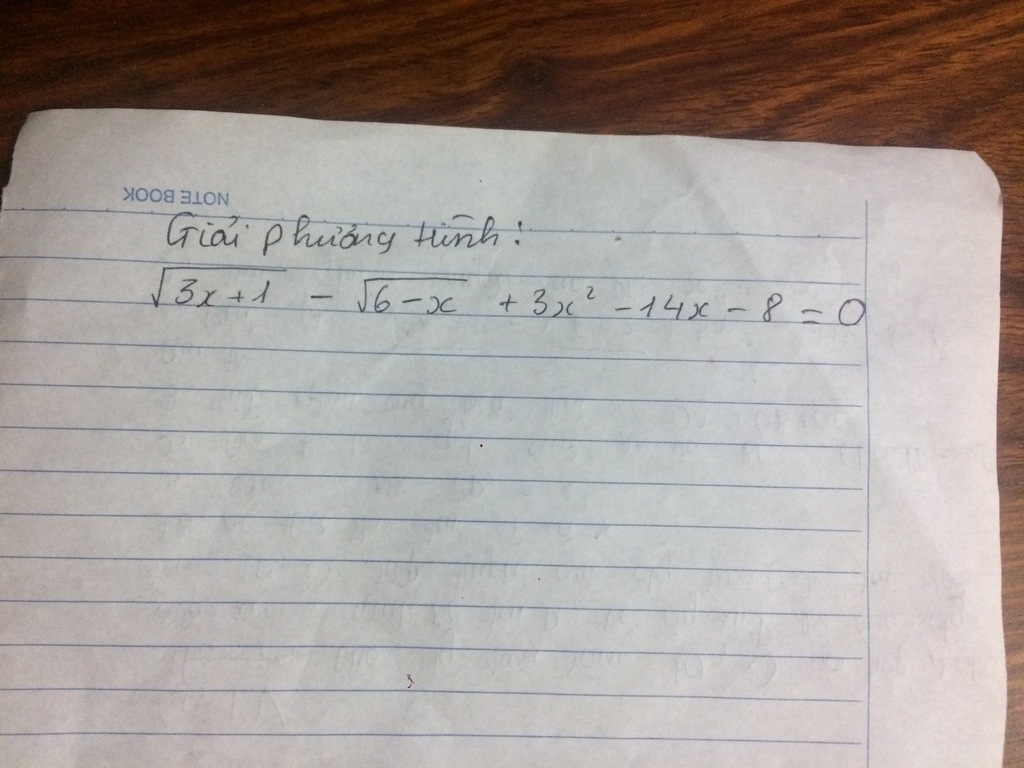 NOTE BOOK
Giải phương trình:
√3x+1 - √6-x + 3x² - 14x - 8 = 0